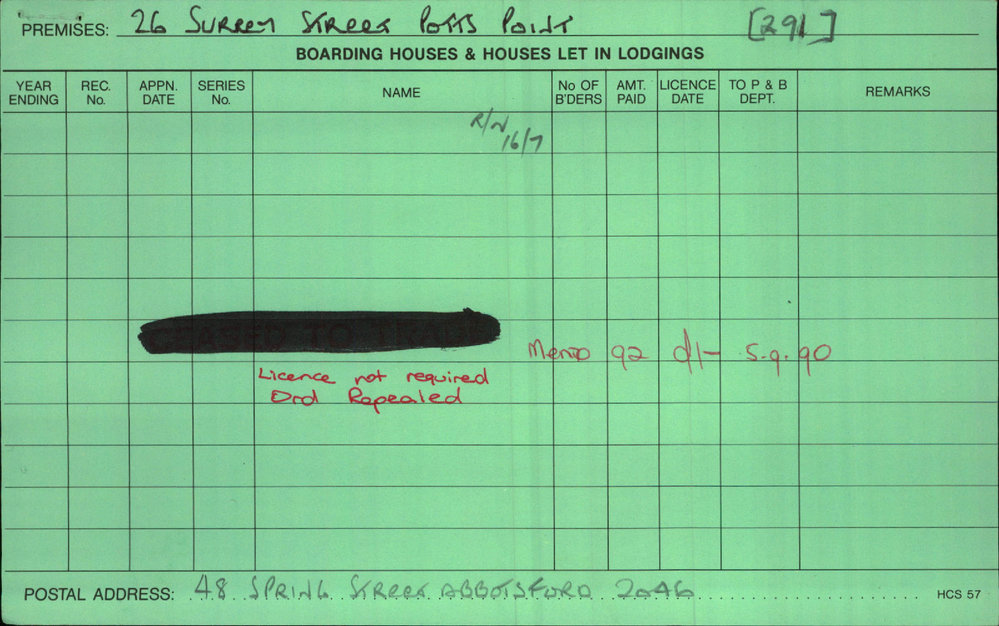 PREMISES: 26 SURREY STREET POTTS POINT [291]
BOARDING HOUSES & HOUSES LET IN LODGINGS
YEAR ENDING REC. No. APPN. DATE SERIES No. NAME No OF B'DERS AMT. PAID LICENCE DATE TO P & B DEPT. REMARKS
R/N 16/7
Memo 92 d/- 5.9.90
Licence not required
Ord Repealed
POSTAL ADDRESS: 48 SPRING STREET ABBOTSFORD 2046 HCS 57